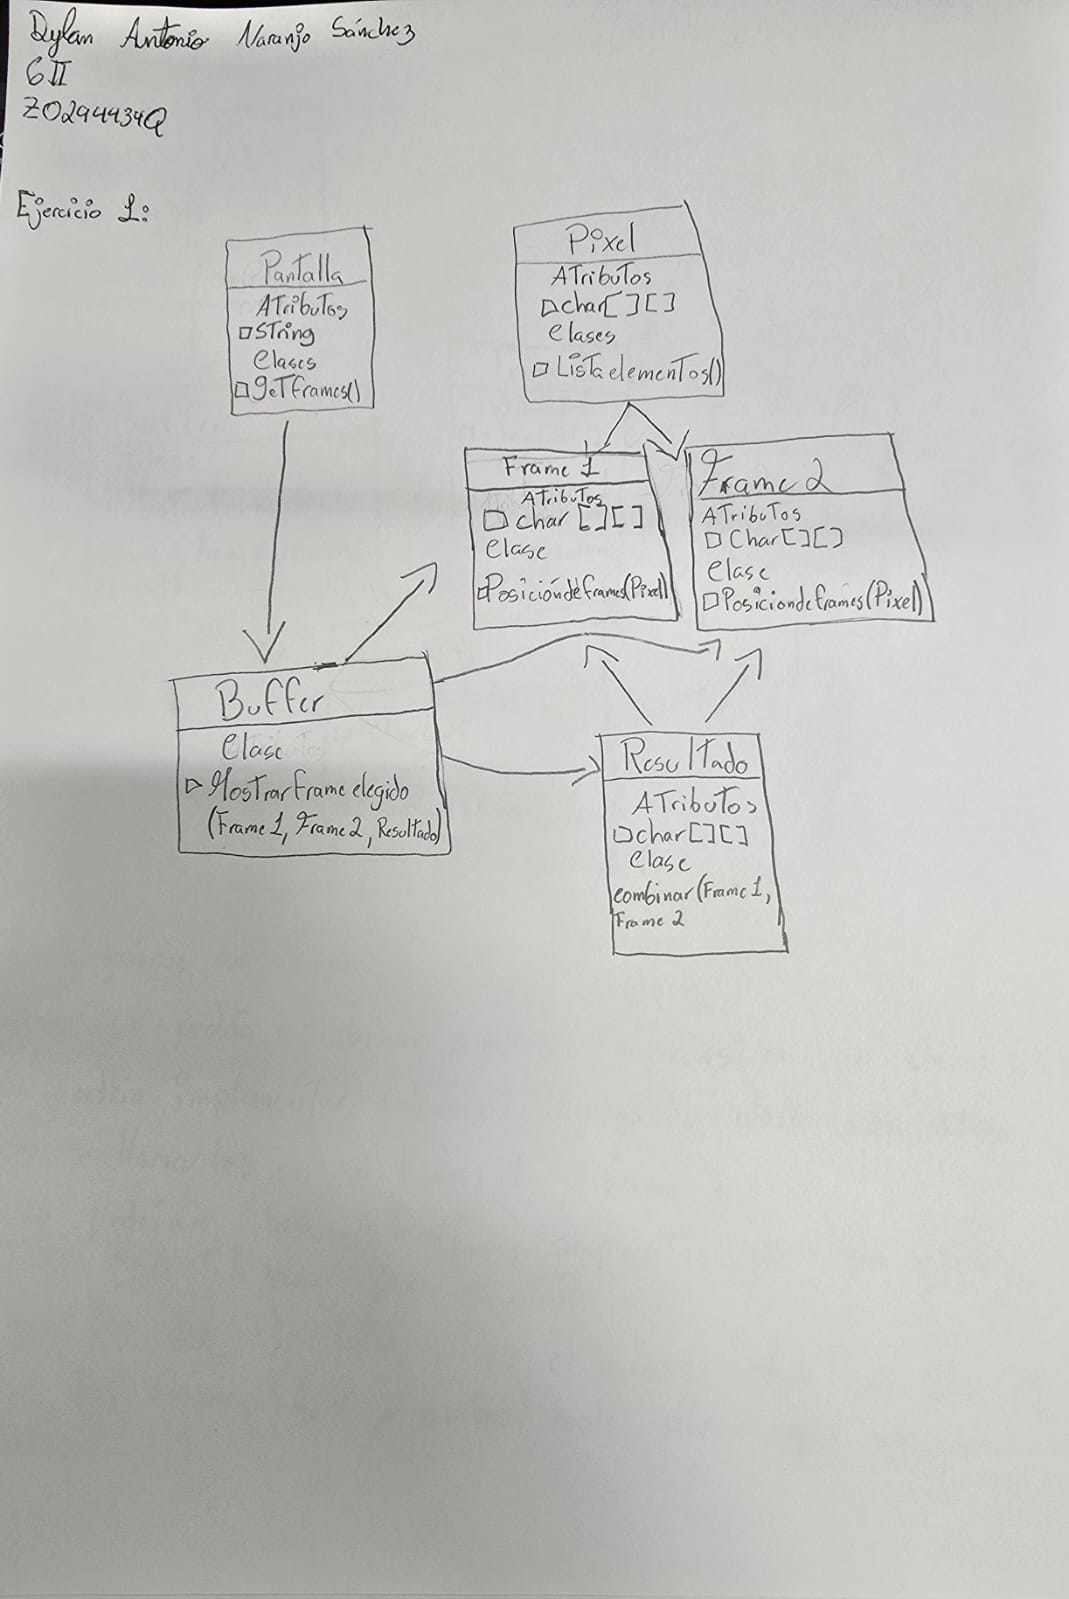 Dylan Antonio Naranjo Sánchez
6II
Z0294434Q
Ejercicio 1:
Pantalla
ATributos
String
Clases
getframes()
Pixel
ATributos
char[][]
Clases
Listaelementos()
Frame 1
ATributos
char [][]
Clase
Posicióndeframes(Pixel)
Frame 2
ATributos
Char[][]
Clase
Posiciondeframes(Pixel)
Buffer
Clase
Mostrarframe elegido
(Frame 1, Frame 2, Resultado)
Resultado
ATributos
char[][]
Clase
combinar(Frame 1,
Frame 2